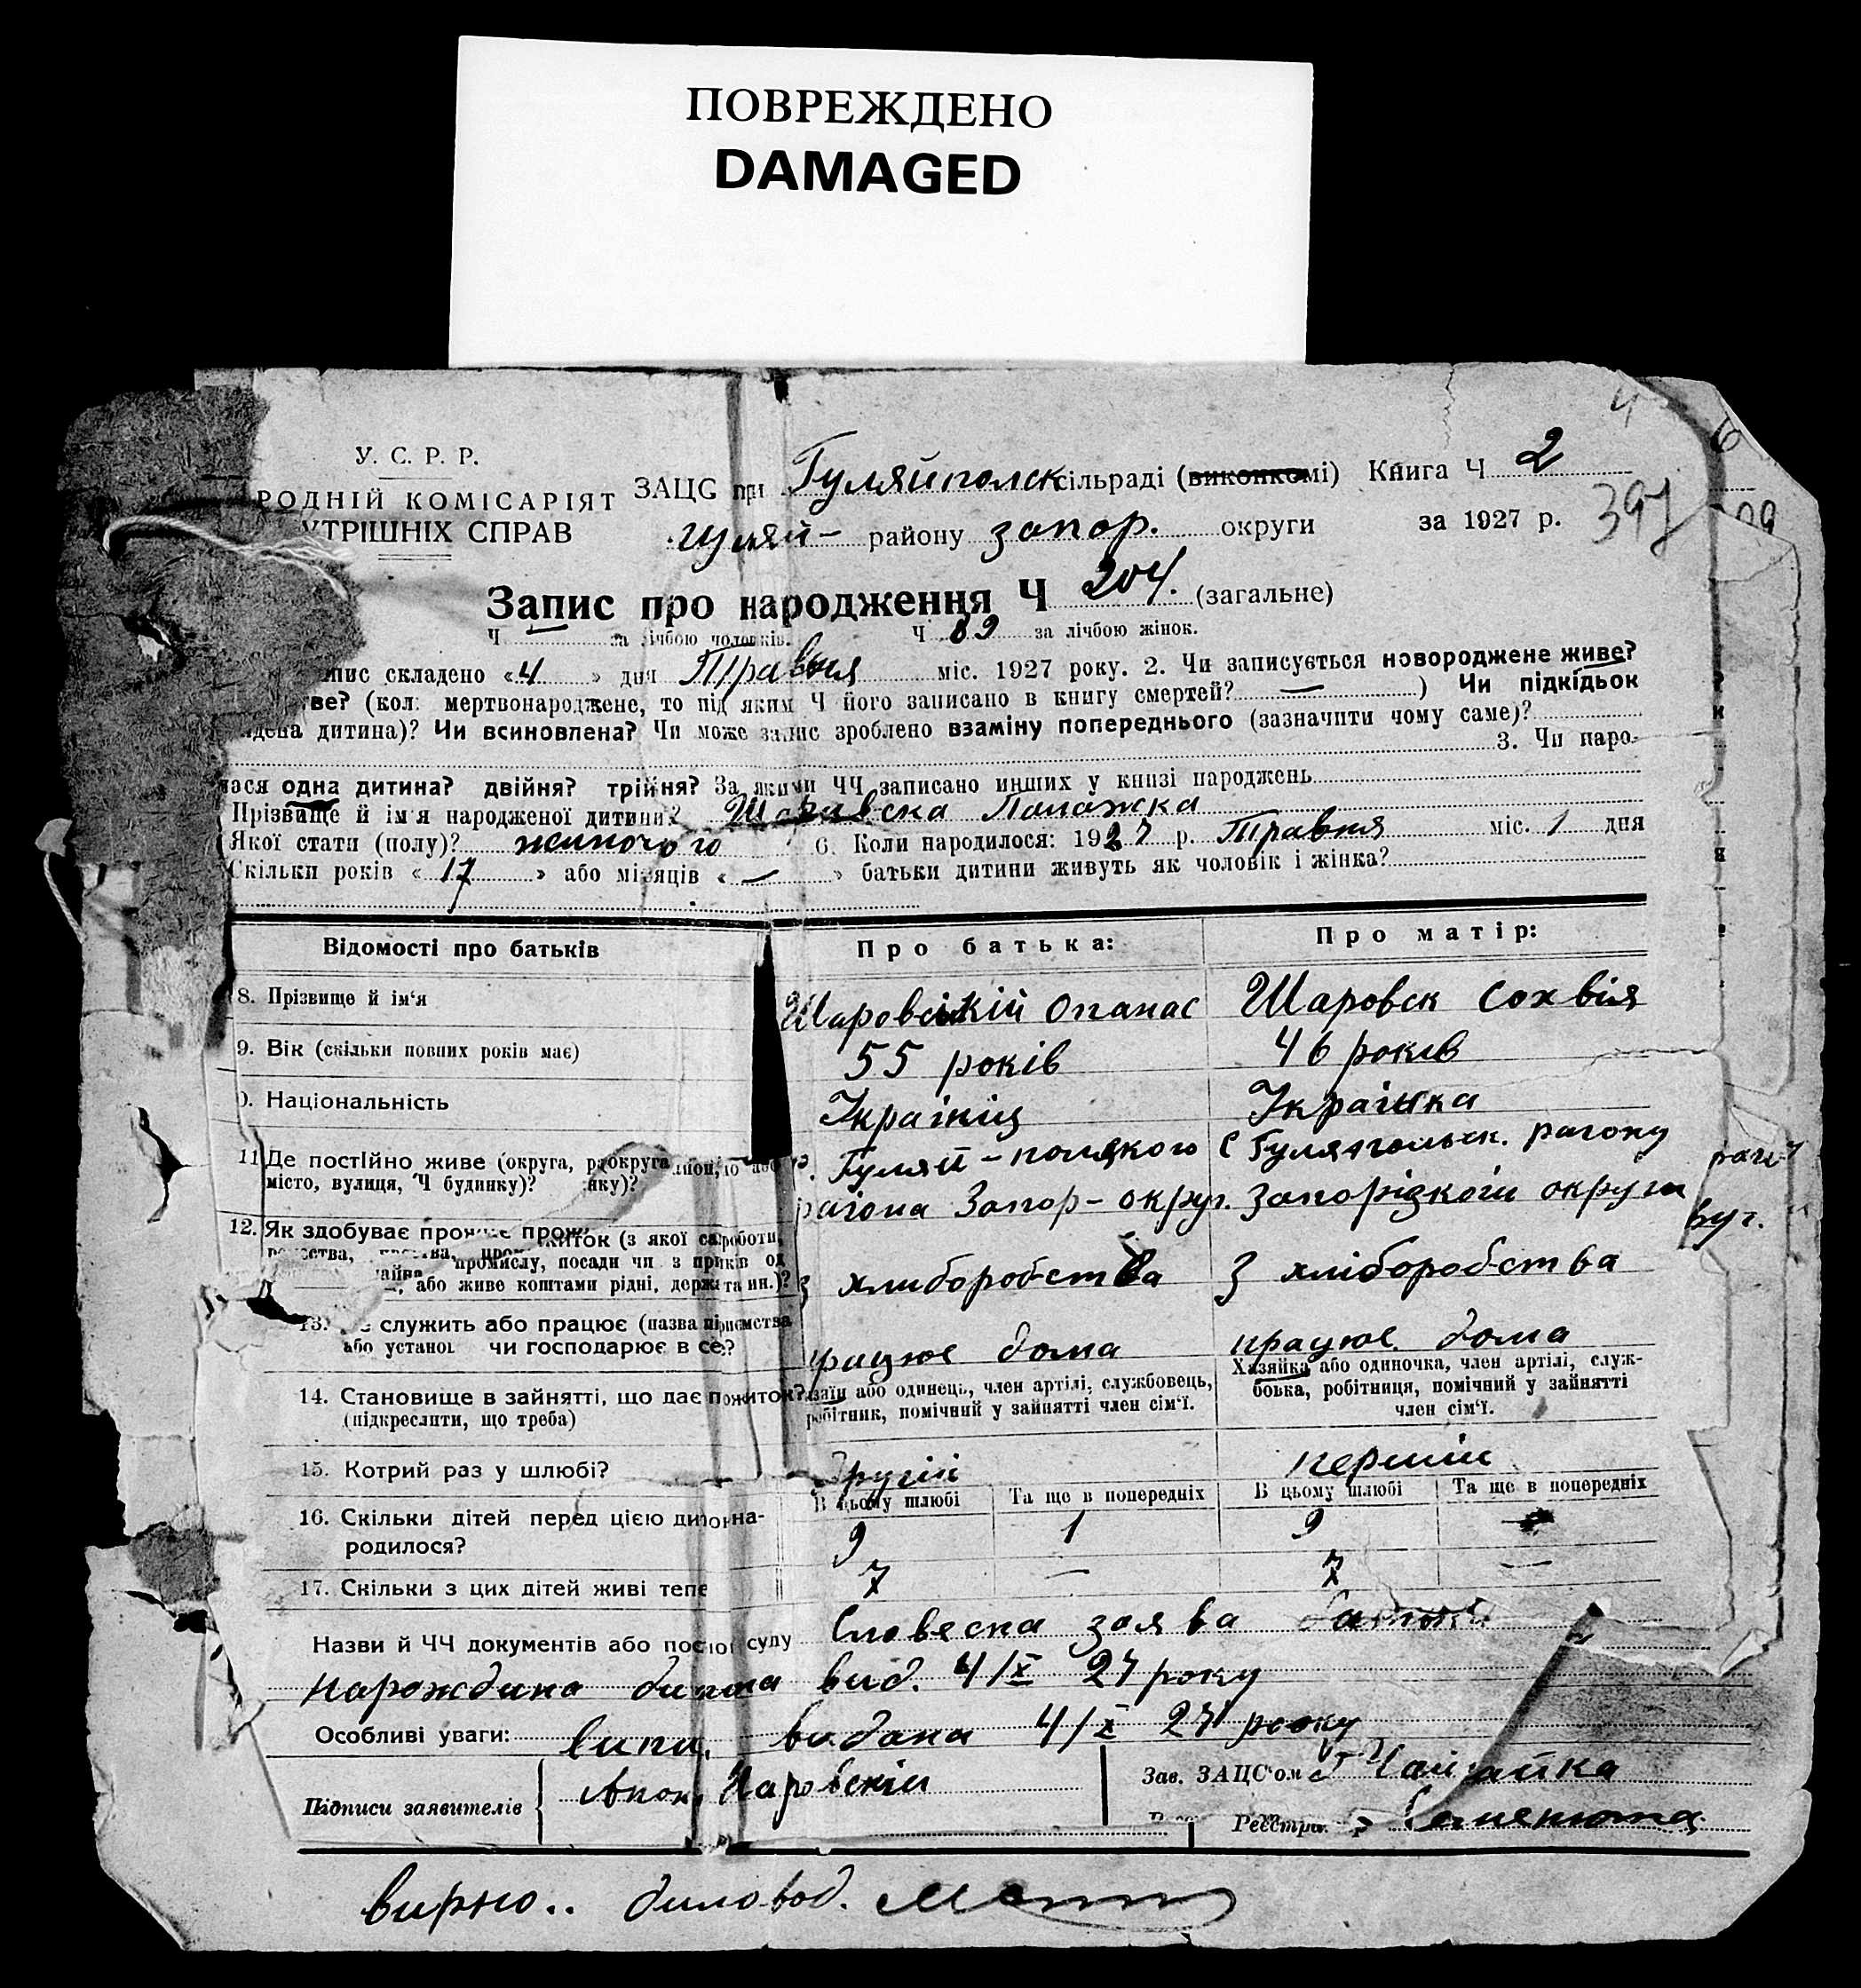 ПОВРЕЖДЕНО
DAMAGED
У. С. Р. Р.
РОДНІЙ КОМІСАРІЯТ
УТРІШНІХ СПРАВ
ЗАЦС при Гуляйполск сільраді (виконкомі) Книга Ч 2
гуляй- району запор. округи за 1927 р. 397
Запис про народження Ч 204. (загальне)
Ч — за лічбою чоловіків. Ч 89 за лічбою жінок.
пис складено «4» дня Травня міс. 1927 року. 2. Чи записується новороджене живе?
тве? (кол мертвонароджене, то під яким Ч його записано в книгу смертей? — ) Чи підкідьок
йдена дитина)? Чи всиновлена? Чи може запис зроблено взаміну попереднього (зазначити чому саме)?
3. Чи наро-
лася одна дитина? двійня? трійня? За якими ЧЧ записано инших у книзі народжень
Прізвище й ім'я народженої дитини? Шаравска Палажка
Якої стати (полу)? жиночого 6. Коли народилося: 1927 р. Травня міс. 1 дня
Скільки років «17» або місяців «—» батьки дитини живуть як чоловік і жінка?
Відомості про батьків Про батька: Про матір:
8. Прізвище й ім'я Шаровський Опанас Шаровск Сохвія
9. Вік (скільки повних років має) 55 років 46 років
0. Національність Українець Українка
11 Де постійно живе (округа, р округа
місто, вулиця, Ч будинку)? нку)?
Гуляй-поляского С Гуляпольск. району
району Запор-округ. Запорізкоїи округи
12. Як здобуває прож
житок (з якої роботи,
промислу, посади чи з
або живе коштами рідні, держ та ин.)?
з хлиборобства З хліборобства
13. служить або працює (назва підприємства
або устано чи господарює в се?
працює дома працює дома
14. Становище в зайнятті, що дає пожиток?
(підкреслити, що треба)
зяїн або одинець, член артілі, службовець,
робітник, помічний у зайнятті член сім'ї.
Хазяйка або одиночка, член артілі, служ-
бовка, робітниця, помічний у зайнятті
член сім'ї.
15. Котрий раз у шлюбі? Другій перший
В цьому шлюбі Та ще в попередніх В цьому шлюбі Та ще в попередніх
16. Скільки дітей перед цією дитою на-
родилося?
9 1 9
17. Скільки з цих дітей живі тепе 7 — 7 —
Назви й ЧЧ документів або постан суду Словесна заява батька
нарождина вид. 4/X 27 року
Особливі уваги: випи. видана 4/X 27 року
Підписи заявителів Шаровский
Зав. ЗАЦС'ом
Реєстра.
вирно.. диловод.